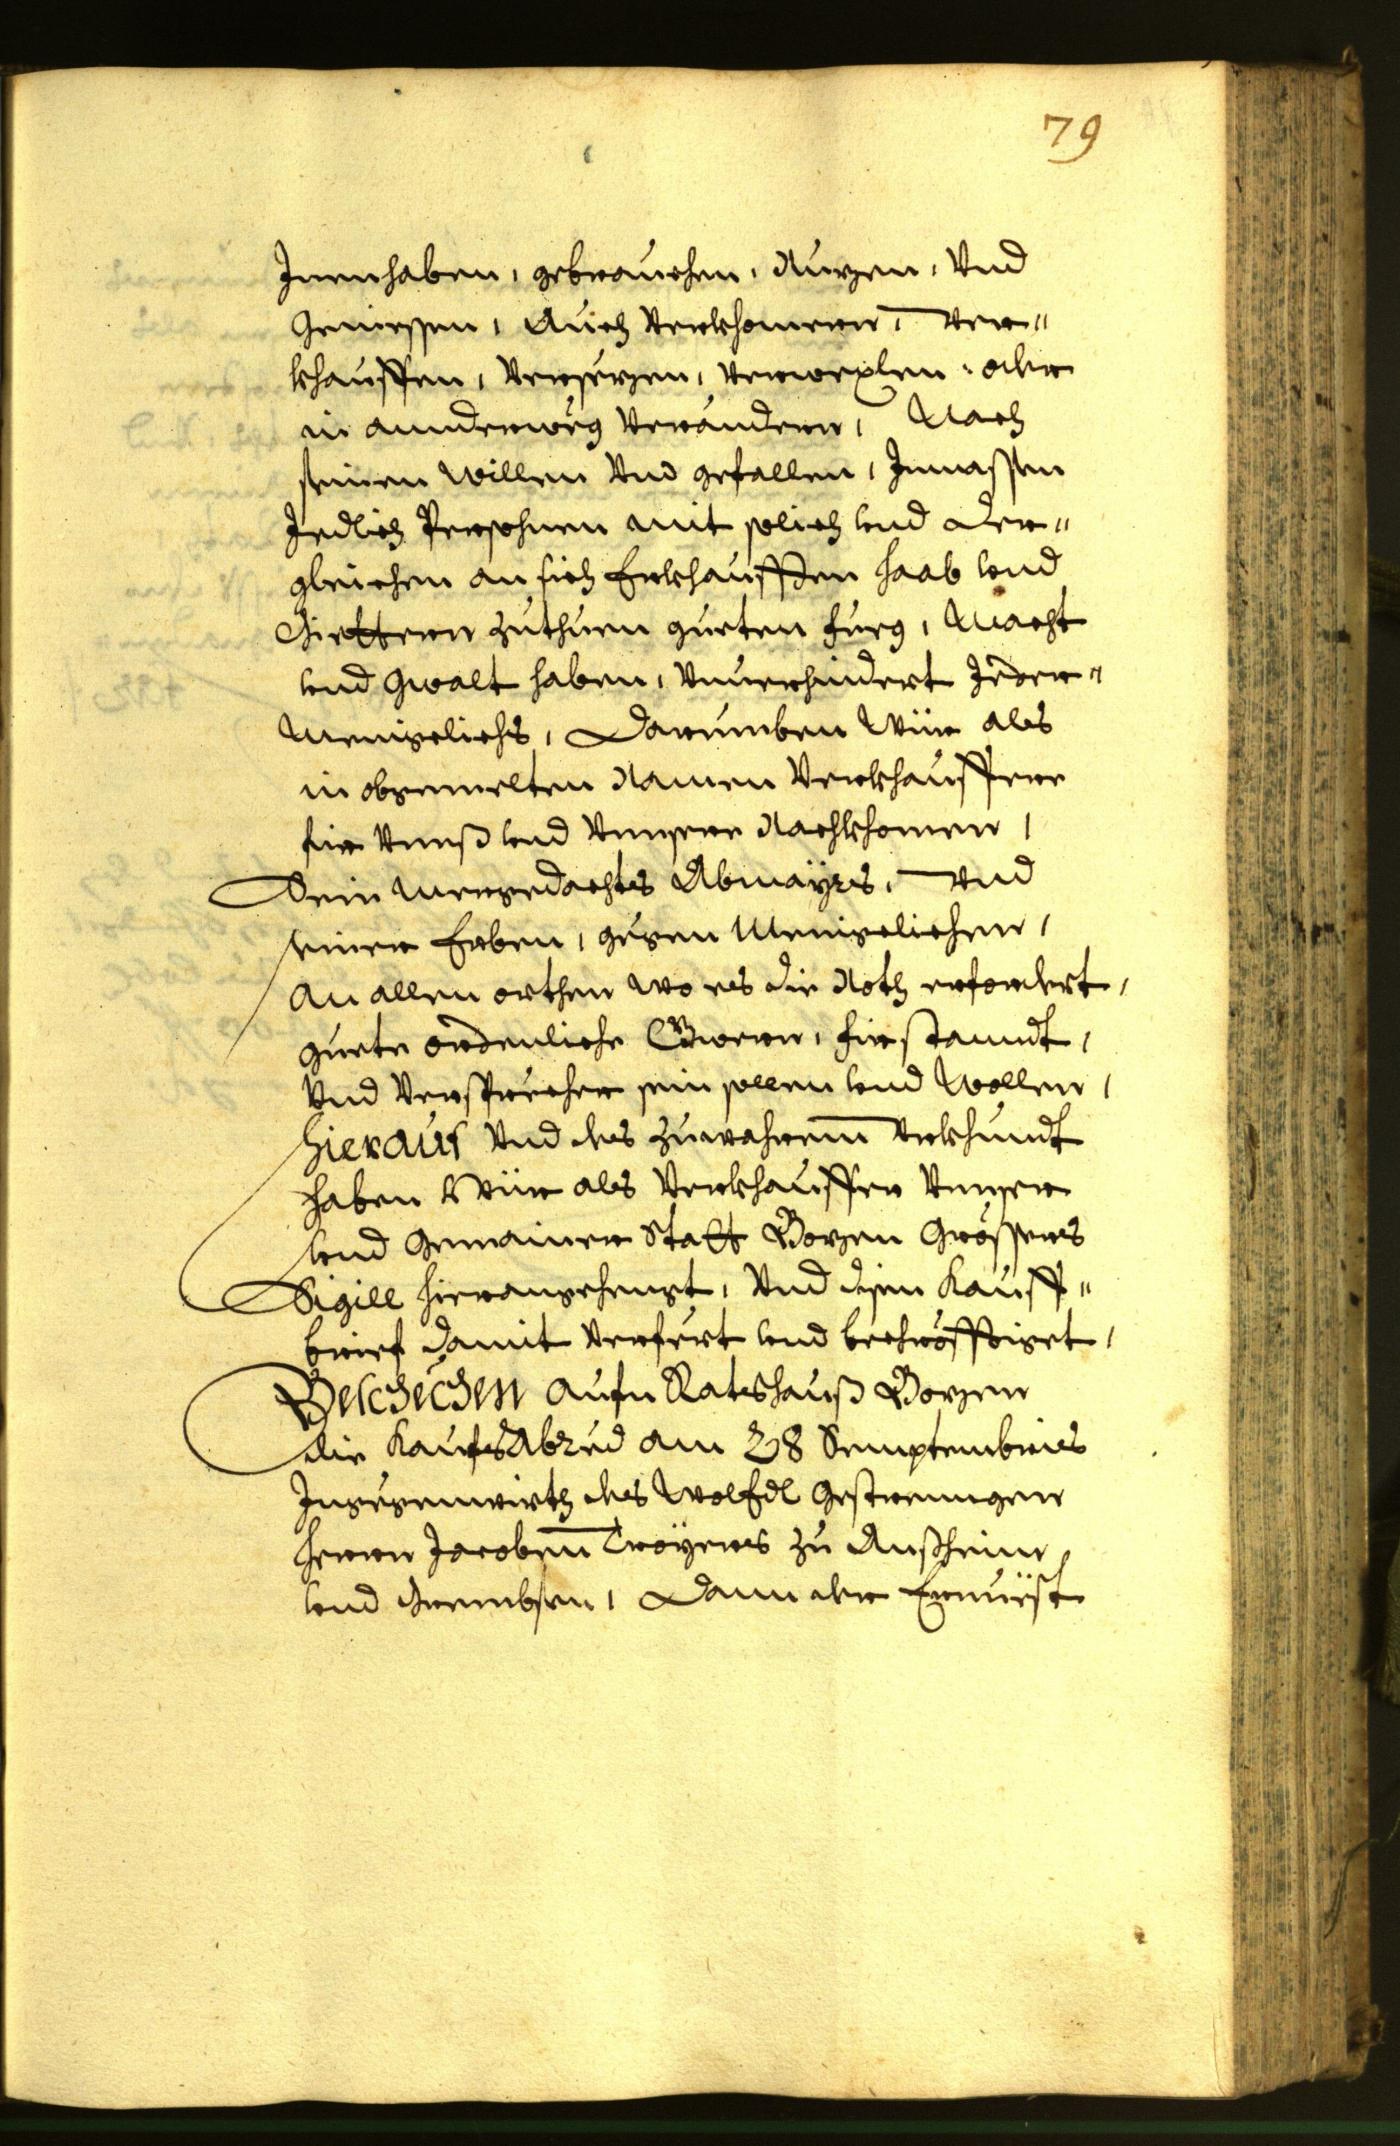 79
Innenhaben, gebrauchen, Nuzen, Vnd
Geniessen, Auch Verkhomern, Ver¬
khauffen, Versezen, Verwexlen, oder
in annderweeg Verändern, Nach
seinen willen Vnd gefallen, Inmassen
Jedlich Persohnen mit solich vnd der¬
gleichen an sich Erkhaufften haab vnd
Giettern zuthuen gueten fueg, Macht
vnd Gwalt haben, Vnuerhindert Jeder¬
Menigelichs, Darumben Wür als
in obgemelten Namen Verkhauffere
für Vnnß vnd Vnnsere Nachkhomen,
Sein mergedachtes Abmayrs, Vnd
seiner Erben, gegen Menigelichen,
an allen orthen wo es die Noth erfordert,
guete ordenliche Gweren, fürstanndt,
Vnd Versprecher sein sollen vnd wollen,
hieraus Vnd des zuwahrem Vrkhundt
haben Wür als Verkhauffer Vnnser
vnd Gemainer Statt Bozen Grössers
Sigill hierangehengt, Vnd disen Kauff¬
brief damit Verfert vnd becröfftiget,
Beschechen aufn Ratshauß Bozen
die KaufsAbred am 28 Semptembris
Ingegenwirth des Wolfdl Gestrenngen
herrn Jacoben Troyers zu Aufkhirn
vnd Grembsen, Dann der Ernuest